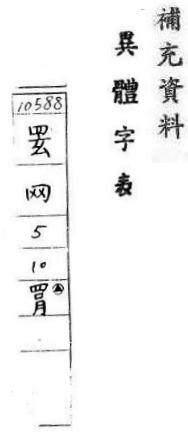 補充資料
異體字表
10588
网
5
10
罥